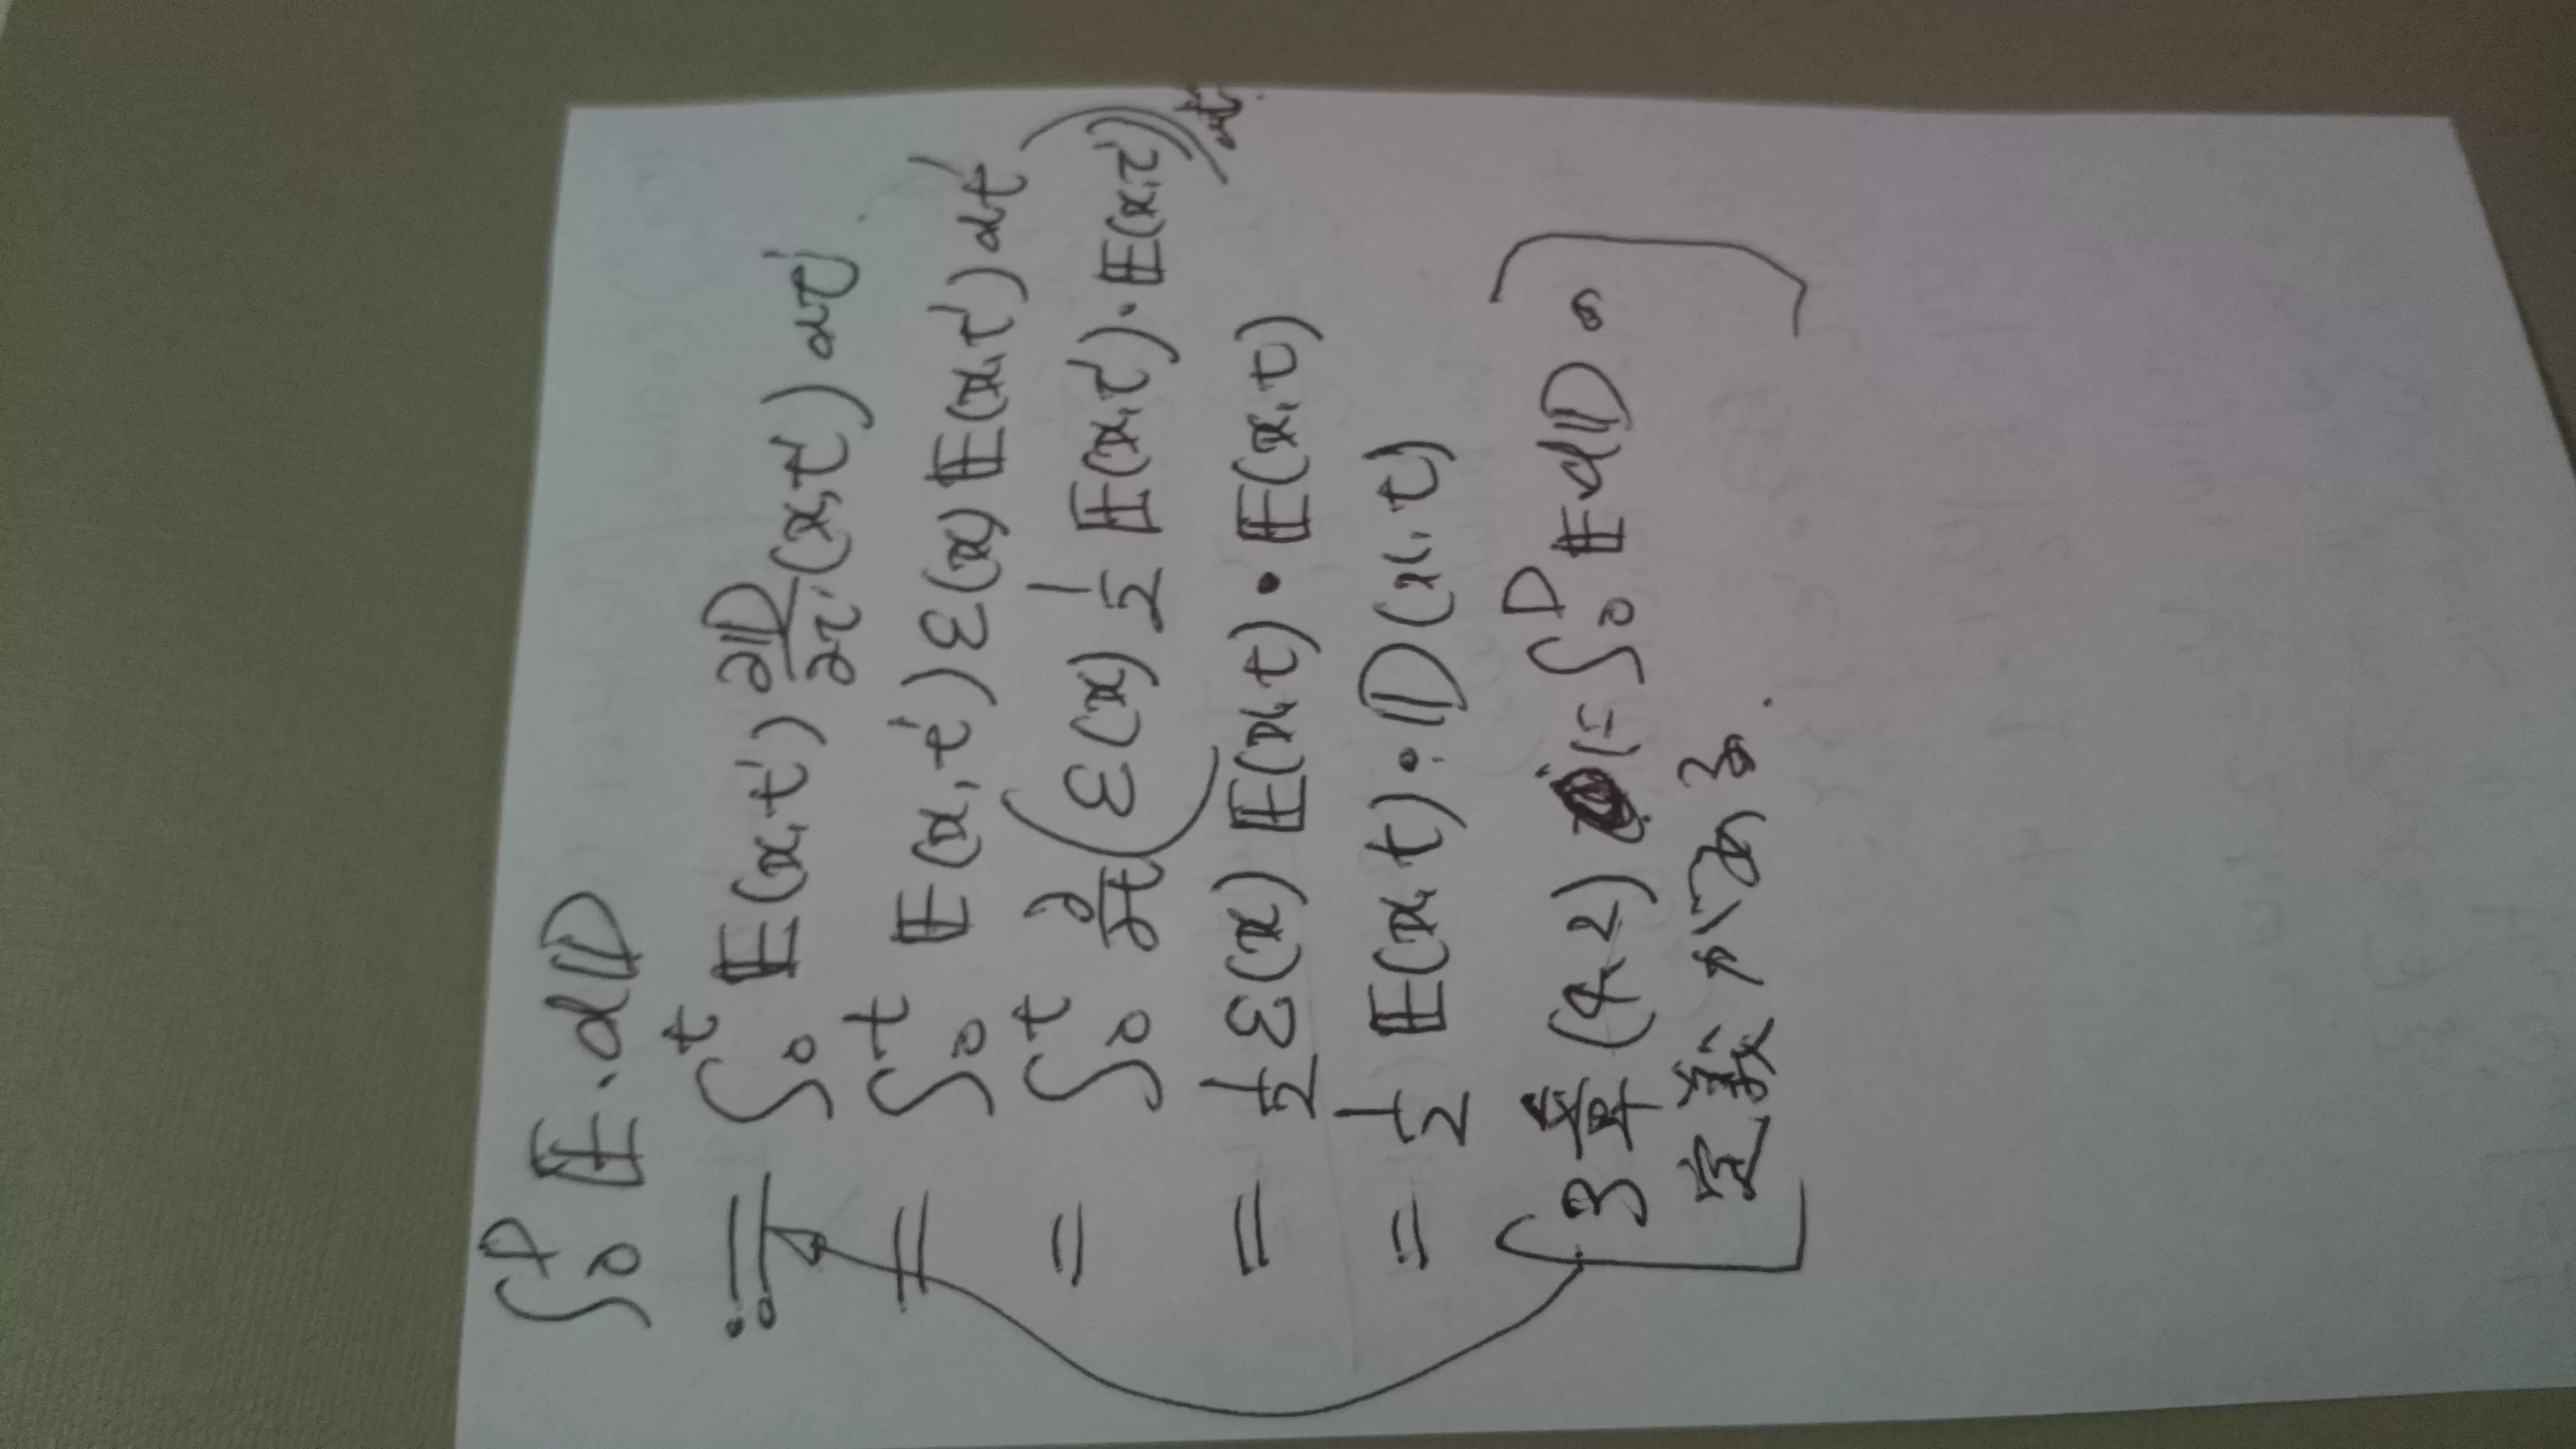 ∫₀ᴰ 𝔼・d𝔻
≔ ∫₀ᵗ 𝔼(x,t') ∂𝔻/∂t' (x,t') dt'
= ∫₀ᵗ 𝔼(x,t') ε(x) 𝔼(x,t') dt'
= ∫₀ᵗ ∂/∂t (ε(x) 1/2 𝔼(x,t')・𝔼(x,t')) dt'
= 1/2 ε(x) 𝔼(x,t)・𝔼(x,t)
= 1/2 𝔼(x,t)・𝔻(x,t)
3章 (4.2) に ∫₀ᴰ 𝔼d𝔻 の
定義がある.